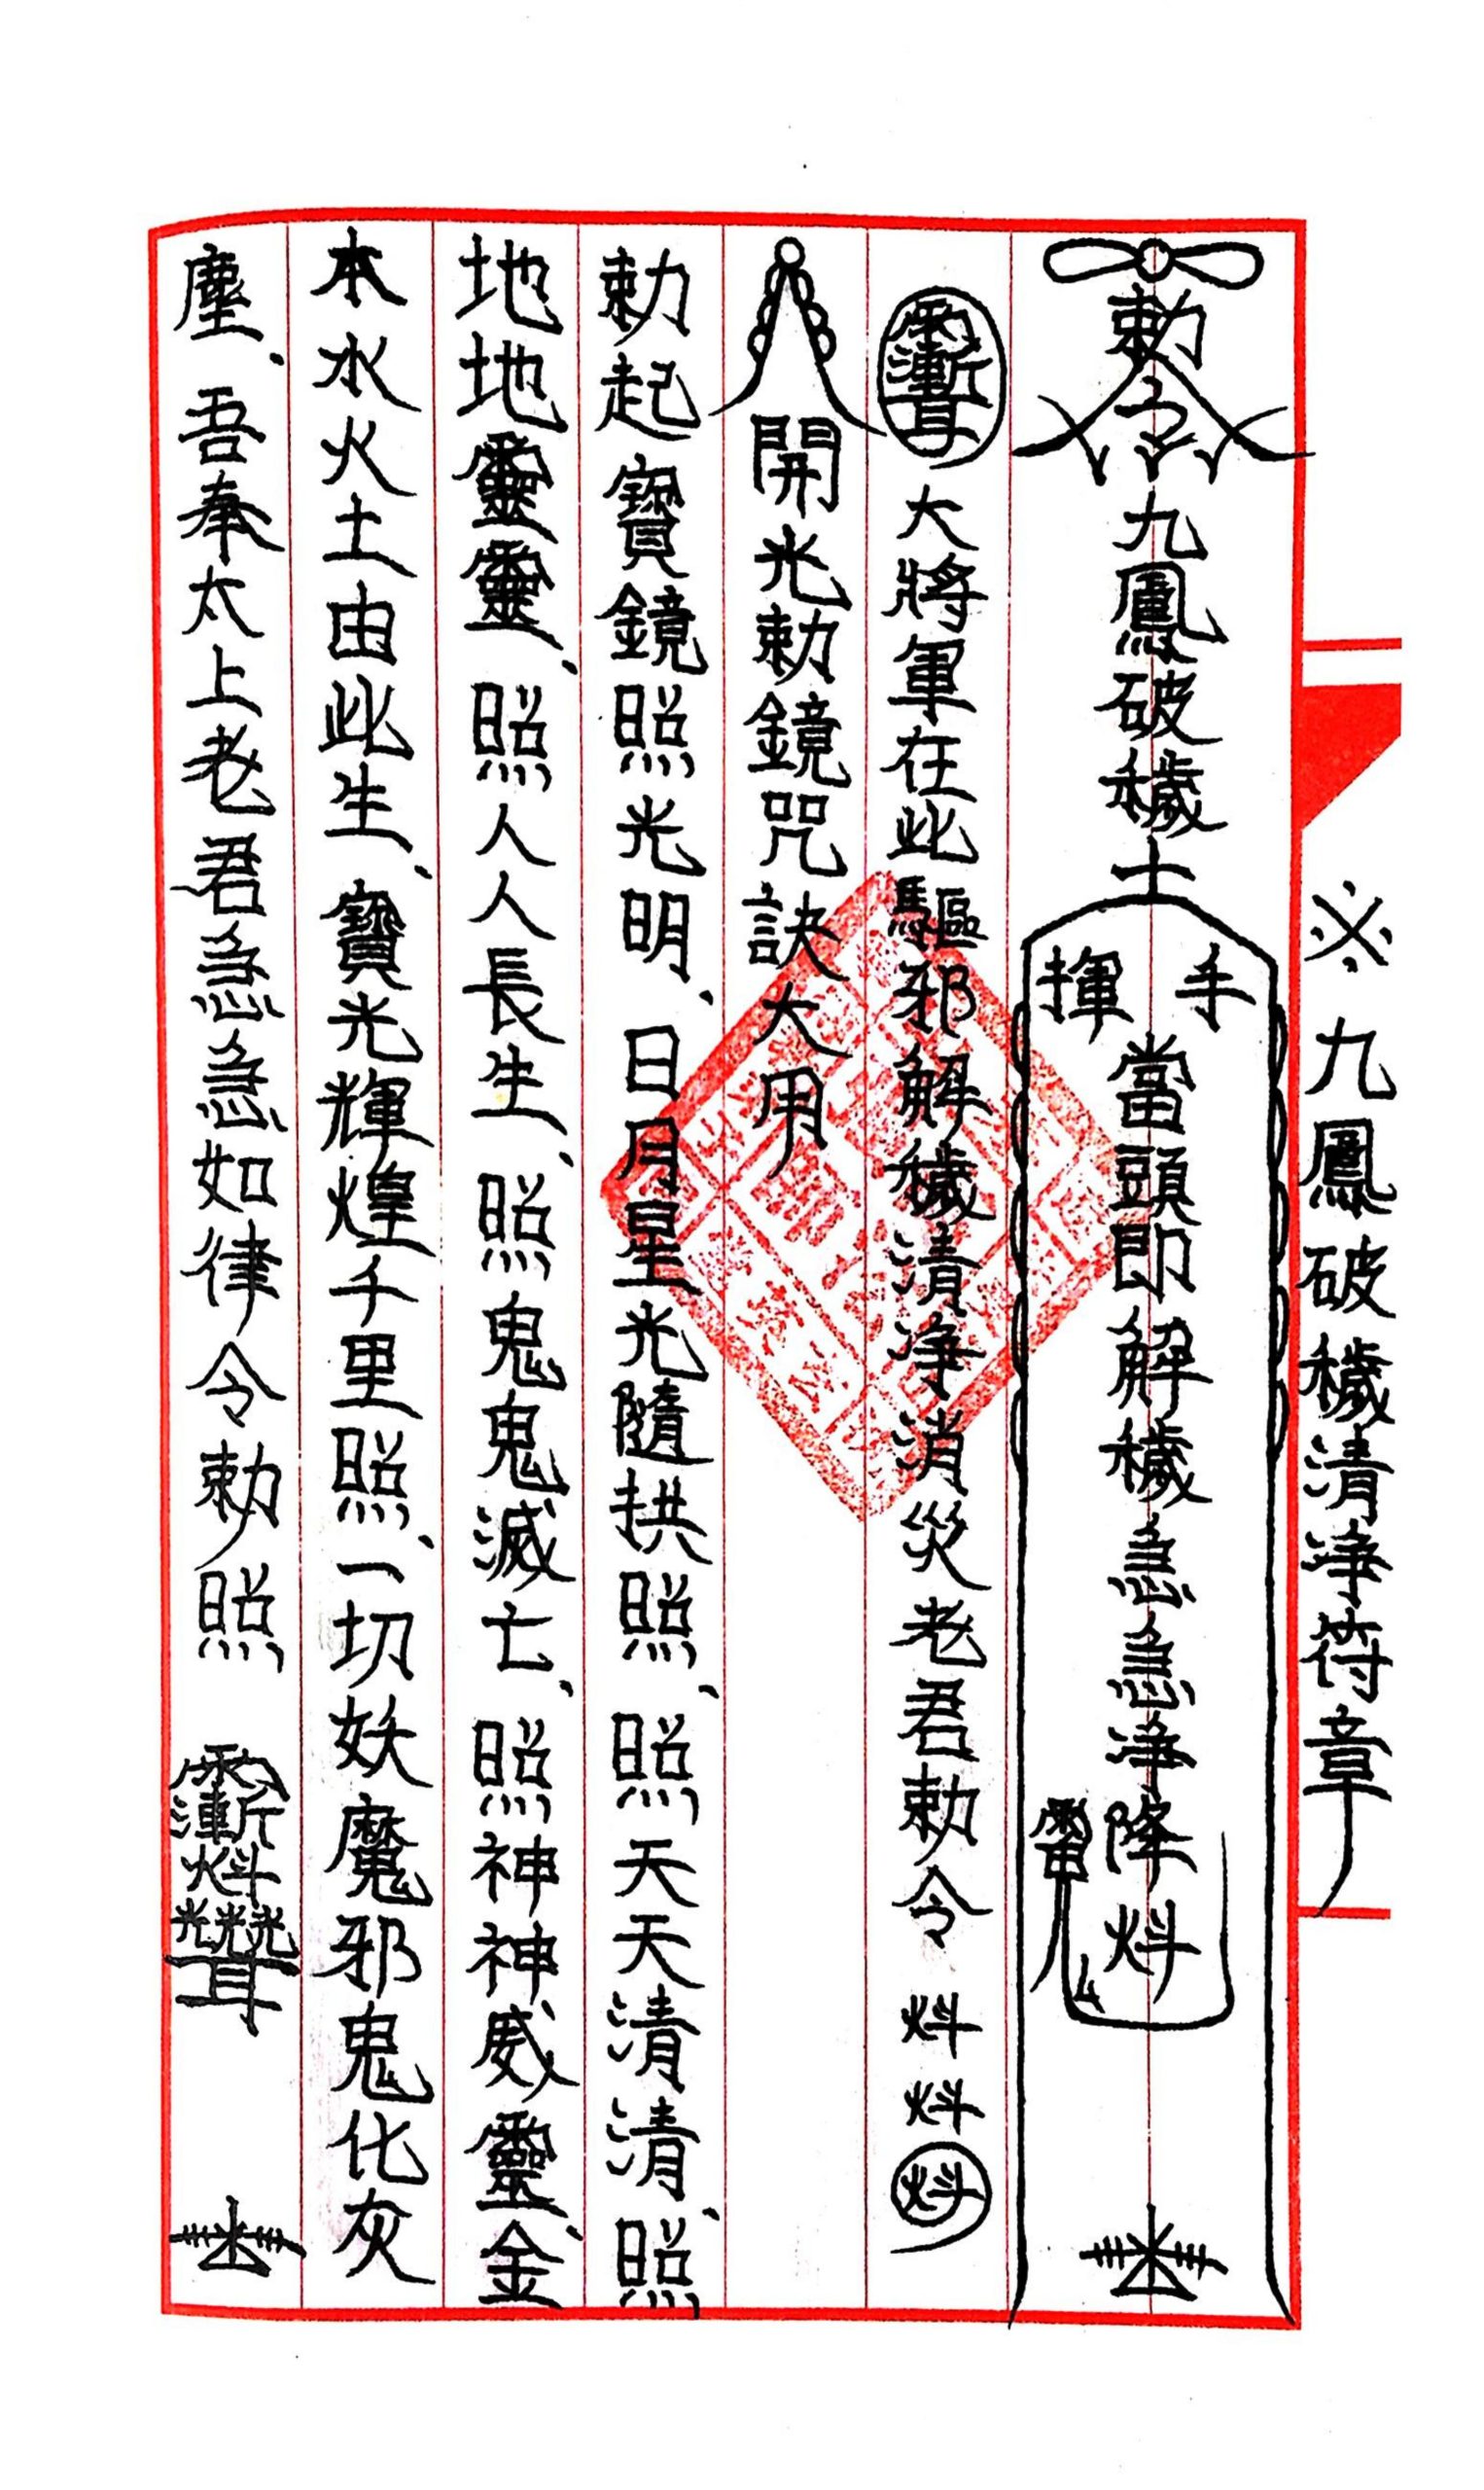 ※九鳳破穢清凈符章
勅令九鳳破穢土
手揮
當頭即解穢急急凈降炓
大將軍在此驅邪解穢清凈消災老君勅令 炓炓炓
開光勅鏡咒訣大用
勅起寶鏡照光明、日月星光隨拱照、照天天清清、照
地地靈靈、照人人長生、照鬼鬼滅亡、照神神威靈、金
木水火土由此生、寶光輝煌千里照、一切妖魔邪鬼化灰
塵、吾奉太上老君急急如律令勅照